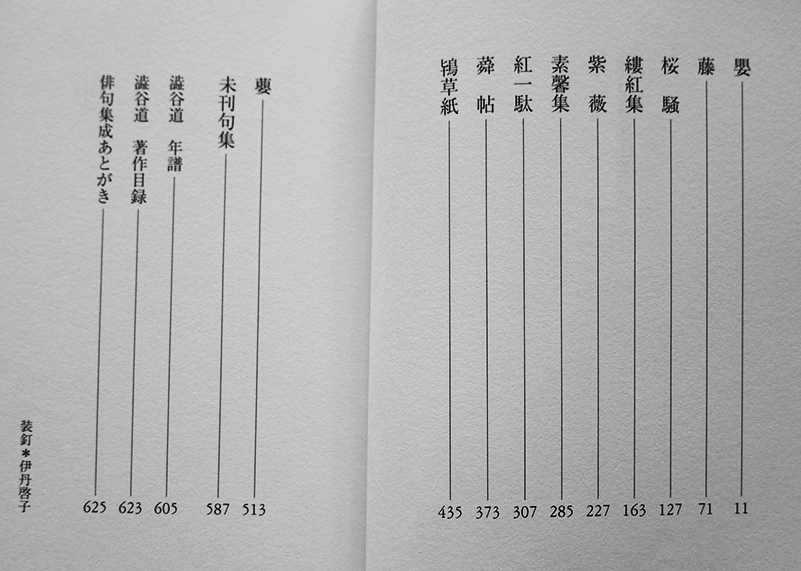 嬰 11
藤 71
桜騒 127
縷紅集 163
紫薇 227
素馨集 285
紅一駄 307
蕣帖 373
鴇草紙 435
蘡 513
未刊句集 587
澁谷道 年譜 605
澁谷道 著作目録 623
俳句集成あとがき 625
装釘*伊丹啓子